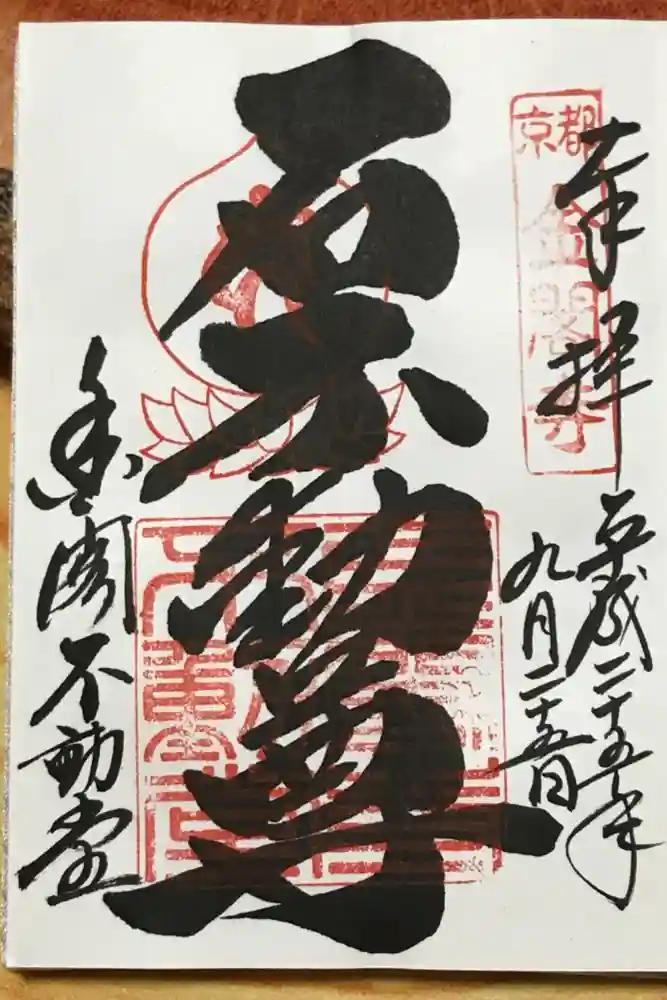 京都
金閣寺
奉拝
平成二十五年
九月二十五日
石不動尊
金閣不動堂